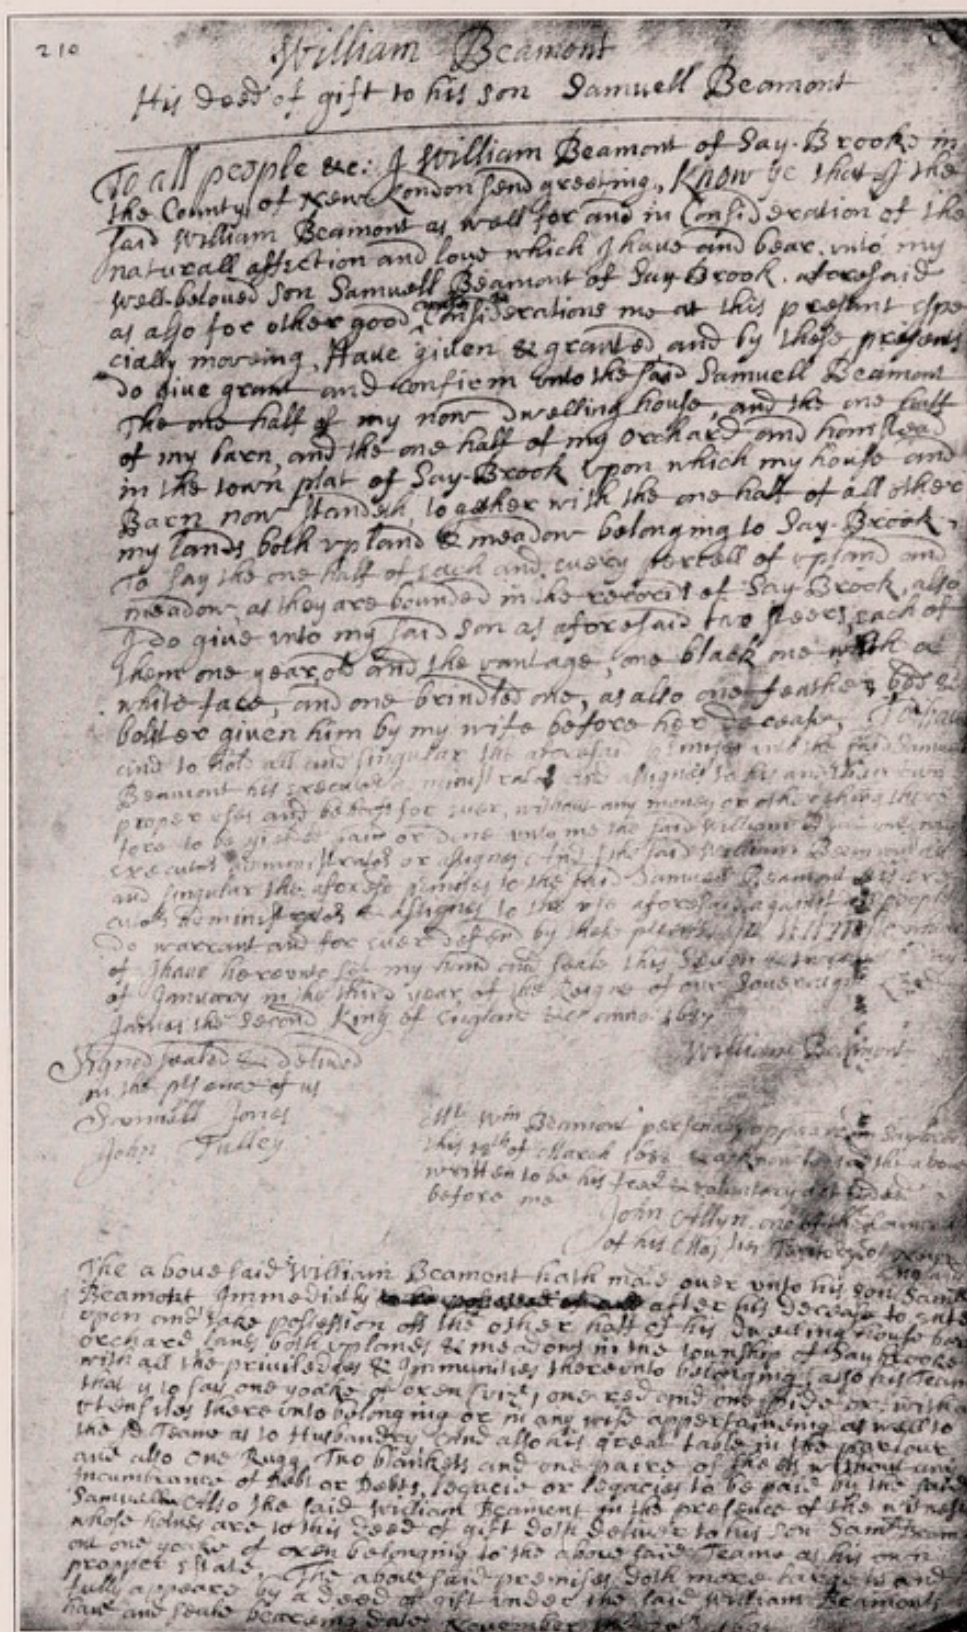 210
William Beamont
His deed of gift to his son Samuell Beamont
To all people &c: I William Beamont of Say-Brooke in
the County of New London send greeting, Know ye that I the
said William Beamont as well for and in Consideration of the
naturall affection and love which I have and bear vnto my
well-beloved son Samuell Beamont of Say-Brook aforesaid
as also for other good Considerations me at this present espe
cially moveing, Have given & granted and by these presents
do give grant and confirm vnto the said Samuell Beamont
The one half of my now dwelling house, and the one half
of my barn, and the one half of my orchard and homstead
in the town plat of Say-Brook vpon which my house and
Barn now standeth, together with the one half of all other
my lands both vpland & meadow belonging to Say-Brook,
To say the one half of each and every percell of vpland and
meadow, as they are bounded in the records of Say-Brook, also
I do give vnto my said son as aforesaid two steers, each of
them one year old and the vantage, one black one with a
white face, and one brindled one, as also one feather bed &
bolster given him by my wife before her decease,
and to hold all and singular the aforesaid premises vnto the said Samuell
Beamont his executors administrators and assignes to his and their own
proper vses and behoofs for ever, without any money or other thing there
fore to be yielded paid or done vnto me the said William
executors administrators or assignes And I the said William Beamont all
and singular the aforesd premises to the said Samuell Beamont his exe
cutors Administrators & Assignes to the vse aforesaid against all people
do warrant and for ever defend by these presents In Witness where
of I have herevnto set my hand and seale this Seven
of January in the third year of the Reigne of our Sovereign
James the Second King of England &c anno 1687
William Beamont
Signed sealed & delivred
in the psence of us
Samuell Jones
John Tulley
Mr Wm Beamont personaly appeared in Saybrook
this of March 1688 & acknowledged the above
written to be his free & voluntary act & deed
before me
John Allyn one of the
of his Majties Territory of New
England
The above said William Beamont hath made over vnto his son Samll
Beamont Immediatly after his decease to enter
upon and take possession off the other half of his dwelling house barn
orchard lands both vplands & meadows in the township of Saybrooke
with all the priviledges & Immunities therevnto belonging also his Team
that is to say one yoake of oxen (vizt) one red and one with
vtensiles there vnto belonging or in any wise appertaineing as well to
the sd Teame as to Husbandry And also his great table in the parlour
and also one Rugg, Two blankets and one paire of sheets without any
Incumbrance of Debt or Debts, legacie or legacies to be paid by the said
Samuell Also the said William Beament in the presence of the witnesses
whose names are to this deed of gift doth deliver to his son Saml
one yoake of oxen belonging to the above said Teame as his own
propper Estate. The above said premises doth more largely and
fully appeare by a deed of gift under the said William Beamonts
hand and seale bearing date November